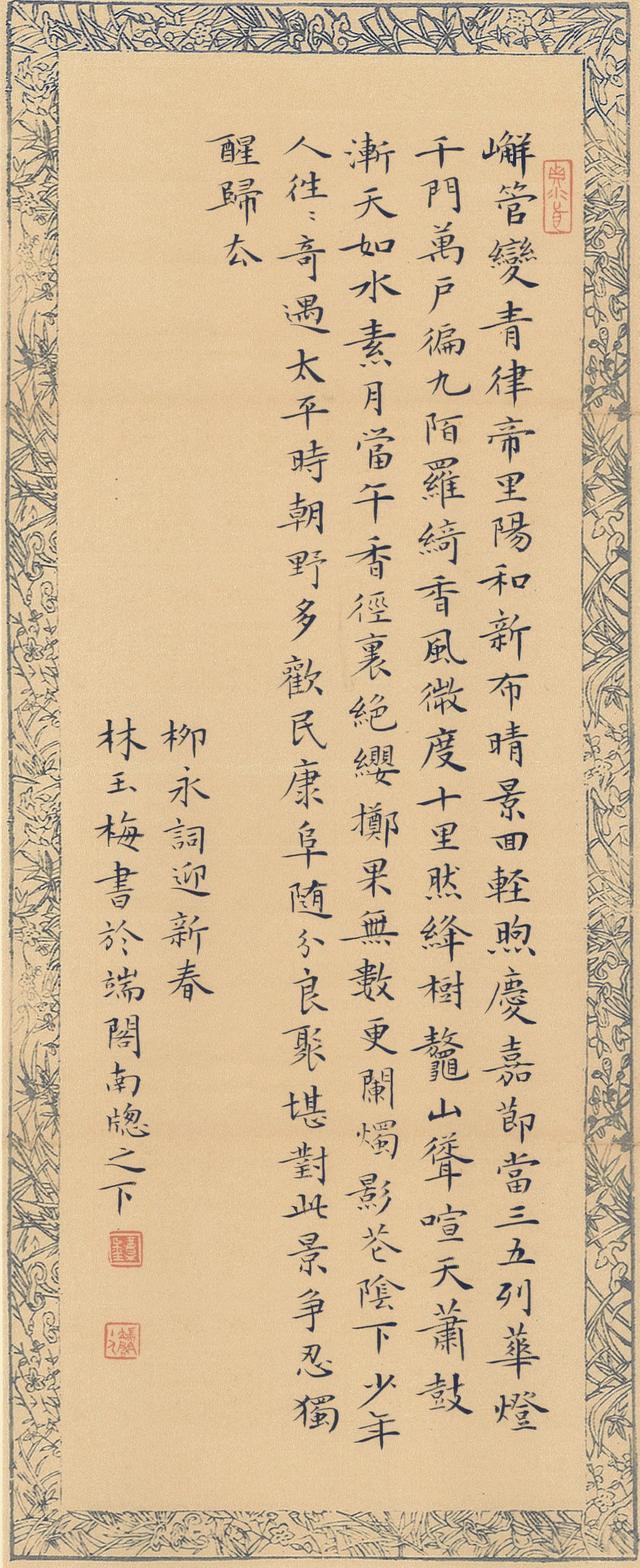 嶰管變青律帝里陽和新布晴景回軽煦慶嘉節當三五列華燈
千門萬戶徧九陌羅綺香風微度十里然絳樹鼇山聳喧天蕭鼓
漸天如水素月當午香徑裏絶纓擲果無數更闌燭影花陰下少年
人徃〻奇遇太平時朝野多歡民康阜随分良聚堪對此景争忍獨
醒歸厺
柳永詞迎新春
林玉梅書於端閣南牕之下